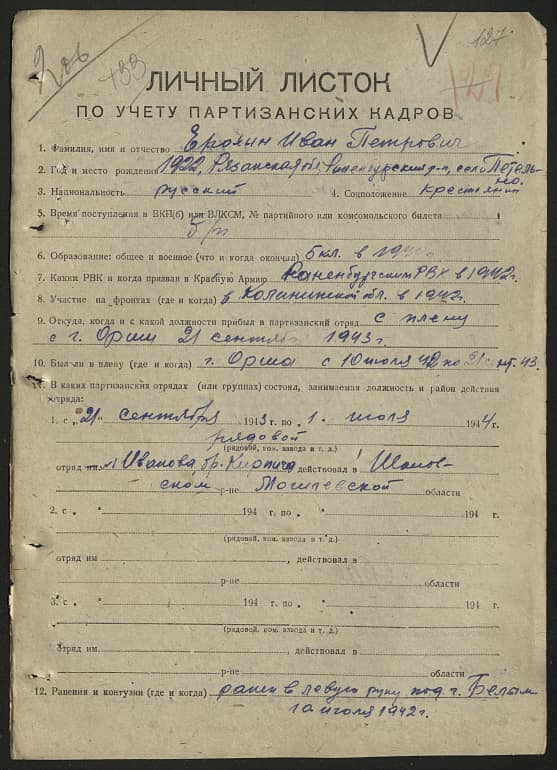 127
133
121
ЛИЧНЫЙ ЛИСТОК
ПО УЧЕТУ ПАРТИЗАНСКИХ КАДРОВ
1. Фамилия, имя и отчество Ерохин Иван Петрович
2. Год и место рождения 1922, Рязанская обл. Раненбургский р-н, село Петель-
но.
3. Национальность русский 4. Соцположение крестьянин
5. Время поступления в ВКП(б) или ВЛКСМ, № партийного или комсомольского билета
б/п
6. Образование: общее и военное (что и когда окончил) 5 кл. в
7. Каким РВК и когда призван в Красную Армию Раненбургским РВК в 1942г.
8. Участие на фронтах (где и когда) в Калининской обл. в 1942г.
9. Откуда, когда и с какой должности прибыл в партизанский отряд с плену
с г. Орши 21 сентября 1943г.
10. Был ли в плену (где и когда) г. Орша с 10 июля 42 по 21 сент. 43.
11. В каких партизанских отрядах (или группах) состоял, занимаемая должность и район действия
отряда:
1. с „21" сентября 1943 г. по „1. июля 1944 г.
рядовой
(рядовой, ком. взвода и т. д.)
отряд им. Иванова бр. Кирпича действовал в Шклов-
ском р-не Могилевской области
2. с „ " 194 г. по „ " 194 г.
(рядовой, ком. взвода и т. д.)
отряд им действовал в
р-не области
3. с „ " 194 г. по „ " 194 г.
(рядовой, ком. взвода и т. д.)
отряд им. действовал в
р-не области
12. Ранения и контузии (где и когда) ранен в левую руку под г. Белым
10 июля 1942г.